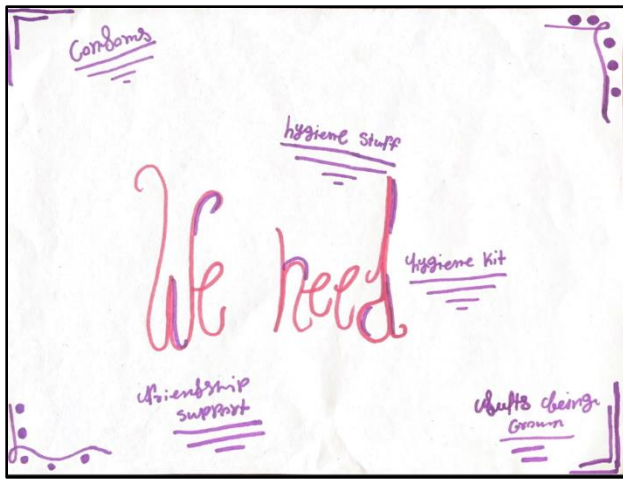 Condoms
hygiene stuff
We need
hygiene kit
friendship
support
Adults being
Grown